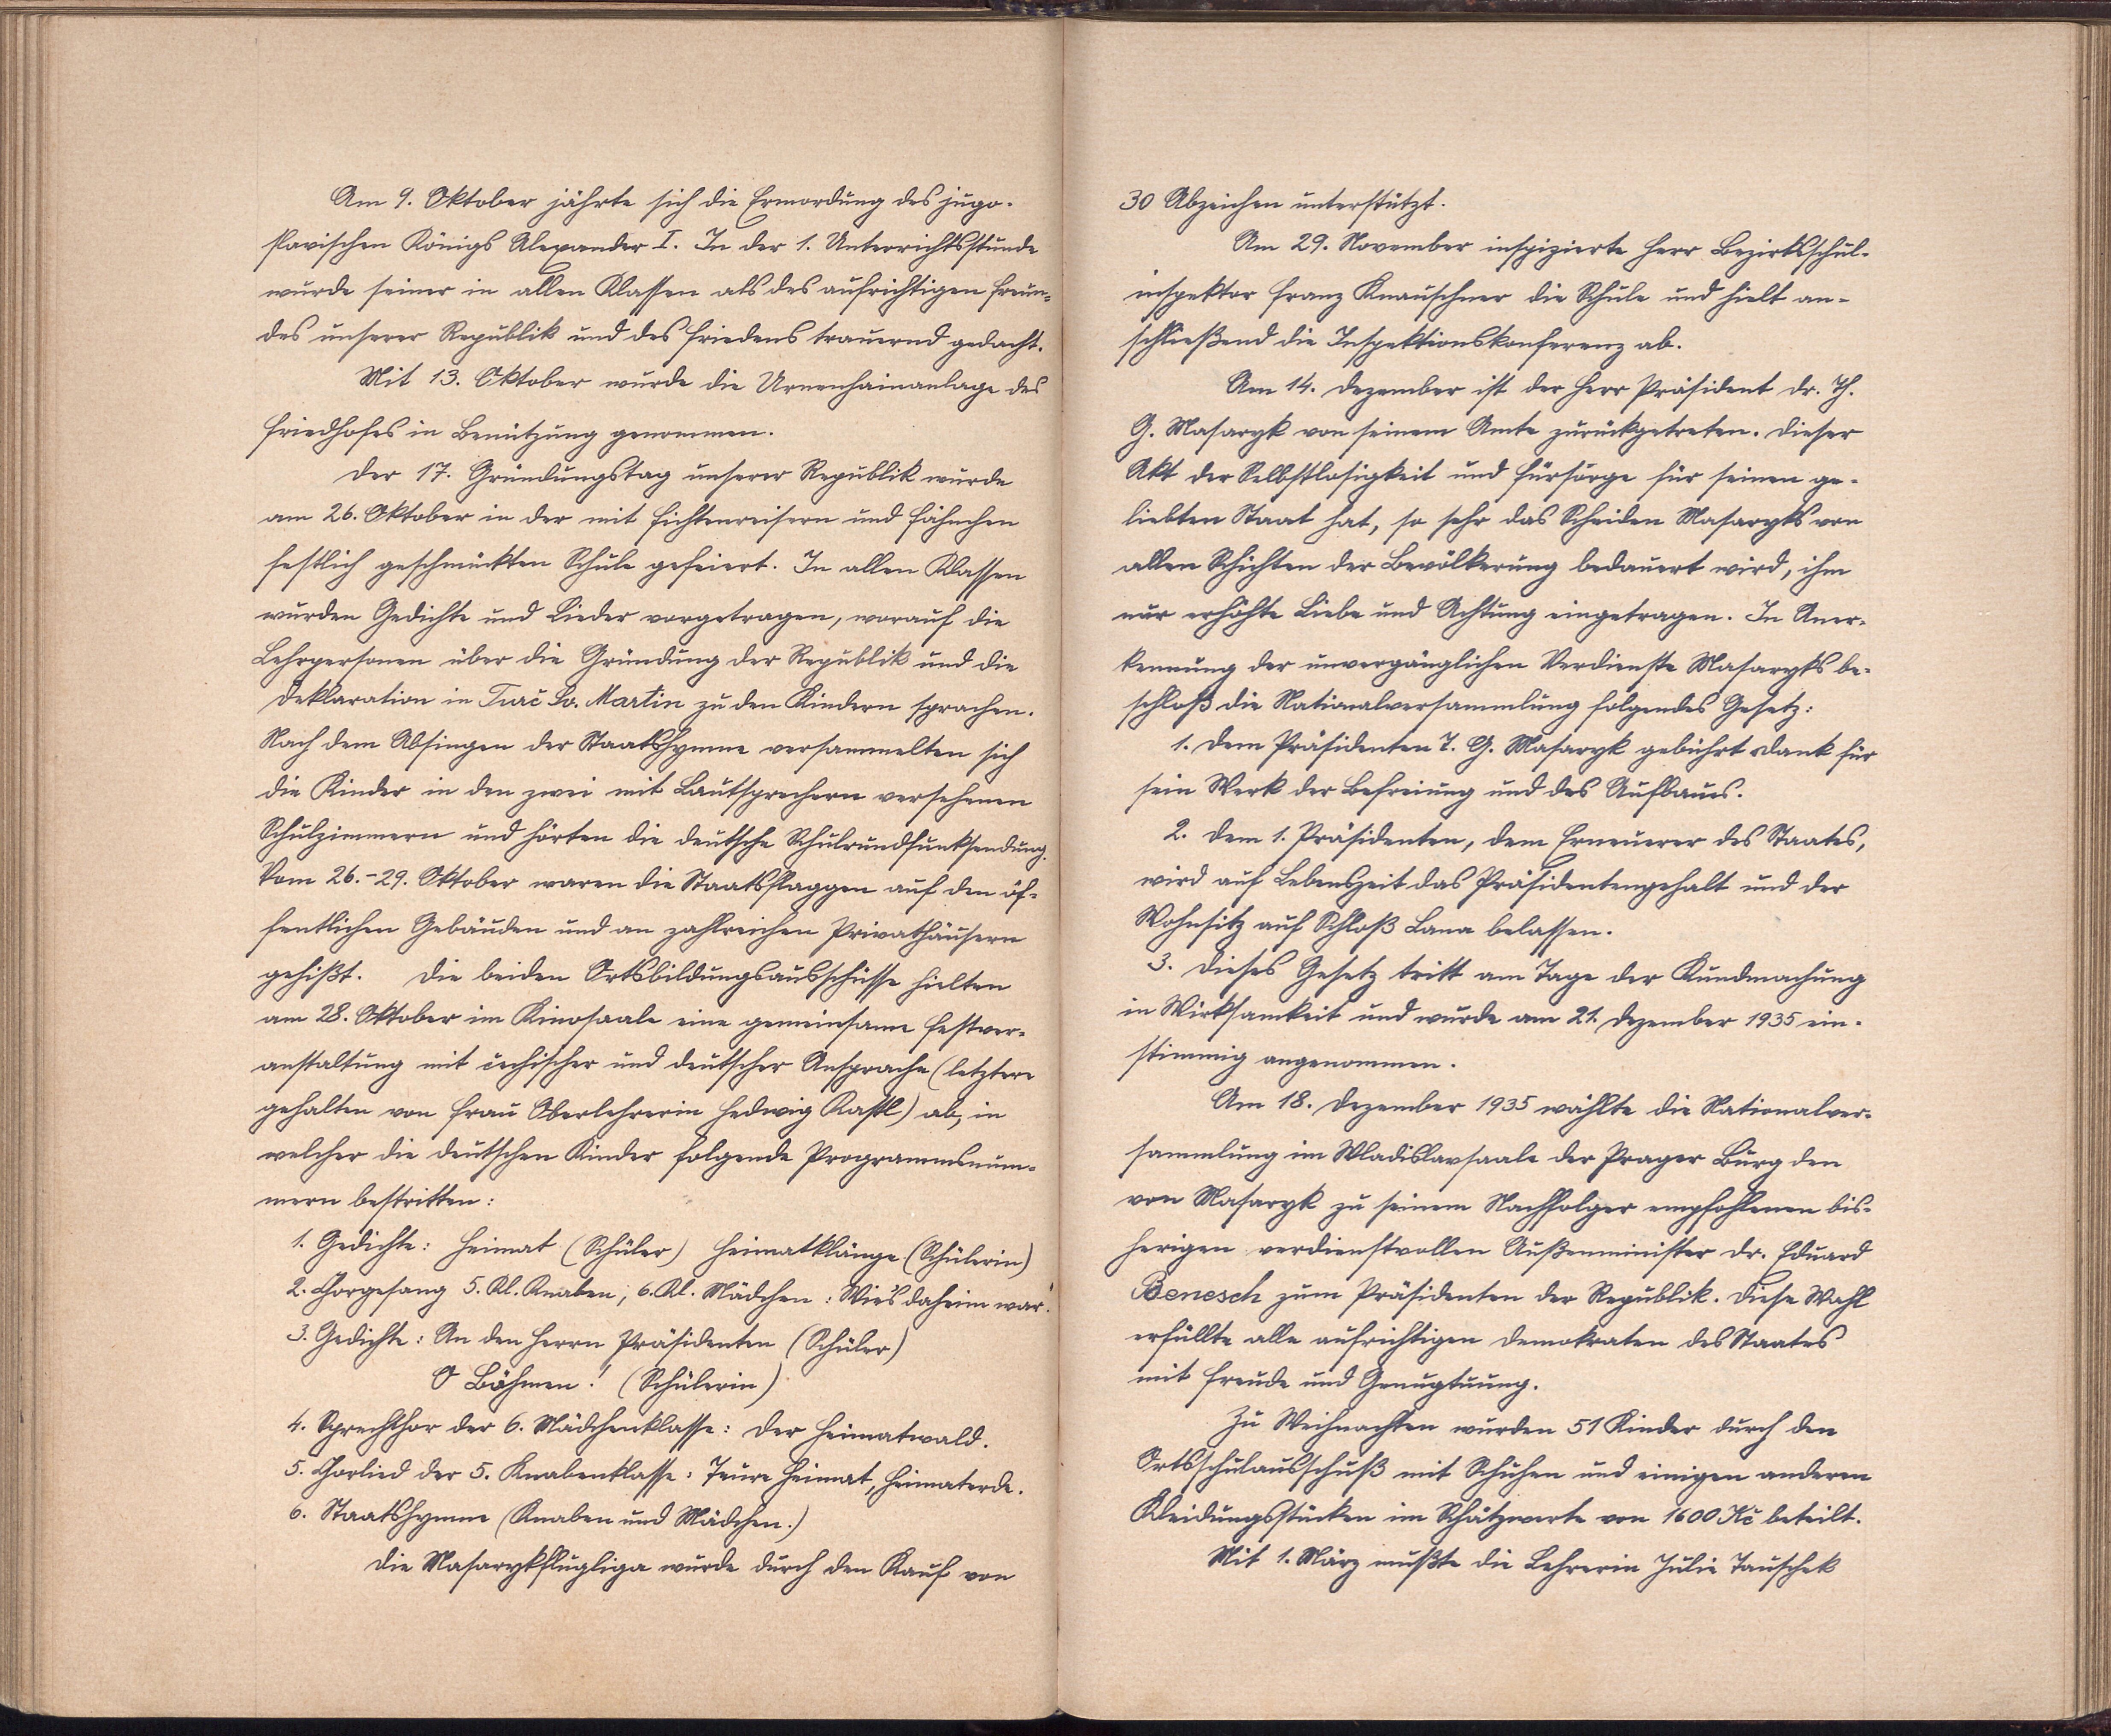 Am 9. Oktober jährte sich die Ermordung des jugo-
slavischen Königs Alexander I. In der 1. Unterrichtsstunde
wurde seiner in allen Klassen als des aufrichtigen Freun-
des unserer Republik und des Friedens trauernd gedacht.
Mit 13. Oktober wurde die Urnenhainanlage des
Friedhofes in Benützung genommen.
Der 17. Gründungstag unserer Republik wurde
am 26. Oktober in der mit Fichtenreisern und Fähnchen
festlich geschmückten Schule gefeiert. In allen Klassen
wurden Gedichte und Lieder vorgetragen, worauf die
Lehrpersonen über die Gründung der Republik und die
Deklaration in Turč Sv. Martin zu den Kindern sprachen.
Nach dem Absingen der Staatshymne versammelten sich
die Kinder in den zwei mit Lautsprechern versehenen
Schulzimmern und hörten die deutsche Schulrundfunksendung.
Vom 26.-29. Oktober waren die Staatsflaggen auf den öf-
fentlichen Gebäuden und an zahlreichen Privathäusern
gehißt. Die beiden Ortsbildungsausschüsse hielten
am 28. Oktober im Kinosaale eine gemeinsame Festver-
anstaltung mit čechischer und deutscher Ansprache (letztere
gehalten von Frau Oberlehrerin Hedwig Kastl) ab, in
welcher die deutschen Kinder folgende Programmsnum-
mern bestritten:
1. Gedichte: Heimat (Schüler) Heimatklänge (Schülerin)
2. Chorgesang 5. Kl. Knaben, 6. Kl. Mädchen: Wie's daheim war.
3. Gedichte: An den Herrn Präsidenten (Schüler)
O Böhmen! (Schülerin)
4. Sprechchor der 6. Mädchenklasse: Der Heimatwald.
5. Chorlied der 5. Knabenklasse: Teure Heimat, Heimaterde.
6. Staatshymne (Knaben und Mädchen.)
Die Masarykflugliga wurde durch den Kauf von
30 Abzeichen unterstützt.
Am 29. November inspizierte Herr Bezirksschul-
inspektor Franz Knauschner die Schule und hielt an-
schließend die Inspektionskonferenz ab.
Am 14. Dezember ist der Herr Präsident Dr. Th.
G. Masaryk von seinem Amte zurückgetreten. Dieser
Akt der Selbstlosigkeit und Fürsorge für seinen ge-
liebten Staat hat, so sehr das Scheiden Masaryks von
allen Schichten der Bevölkerung bedauert wird, ihm
nur erhöhte Liebe und Achtung eingetragen. In Aner-
kennung der unvergänglichen Verdienste Masaryks be-
schloß die Nationalversammlung folgendes Gesetz:
1. Dem Präsidenten T. G. Masaryk gebührt Dank für
sein Werk der Befreiung und des Aufbaues.
2. Dem 1. Präsidenten, dem Erneuerer des Staates,
wird auf Lebenszeit das Präsidentengehalt und der
Wohnsitz auf Schloß Lana belassen.
3. Dieses Gesetz tritt am Tage der Kundmachung
in Wirksamkeit und wurde am 21. Dezember 1935 ein-
stimmig angenommen.
Am 18. Dezember 1935 wählte die Nationalver-
sammlung im Wladislavsaale der Prager Burg den
von Masaryk zu seinem Nachfolger empfohlenen bis-
herigen verdienstvollen Außenminister Dr. Eduard
Benesch zum Präsidenten der Republik. Diese Wahl
erfüllte alle aufrichtigen Demokraten des Staates
mit Freude und Genugtuung.
Zu Weihnachten wurden 51 Kinder durch den
Ortsschulausschuß mit Schuhen und einigen anderen
Kleidungsstücken im Schätzwerte von 1600 Kč beteilt.
Mit 1. März mußte die Lehrerin Julie Tauschek